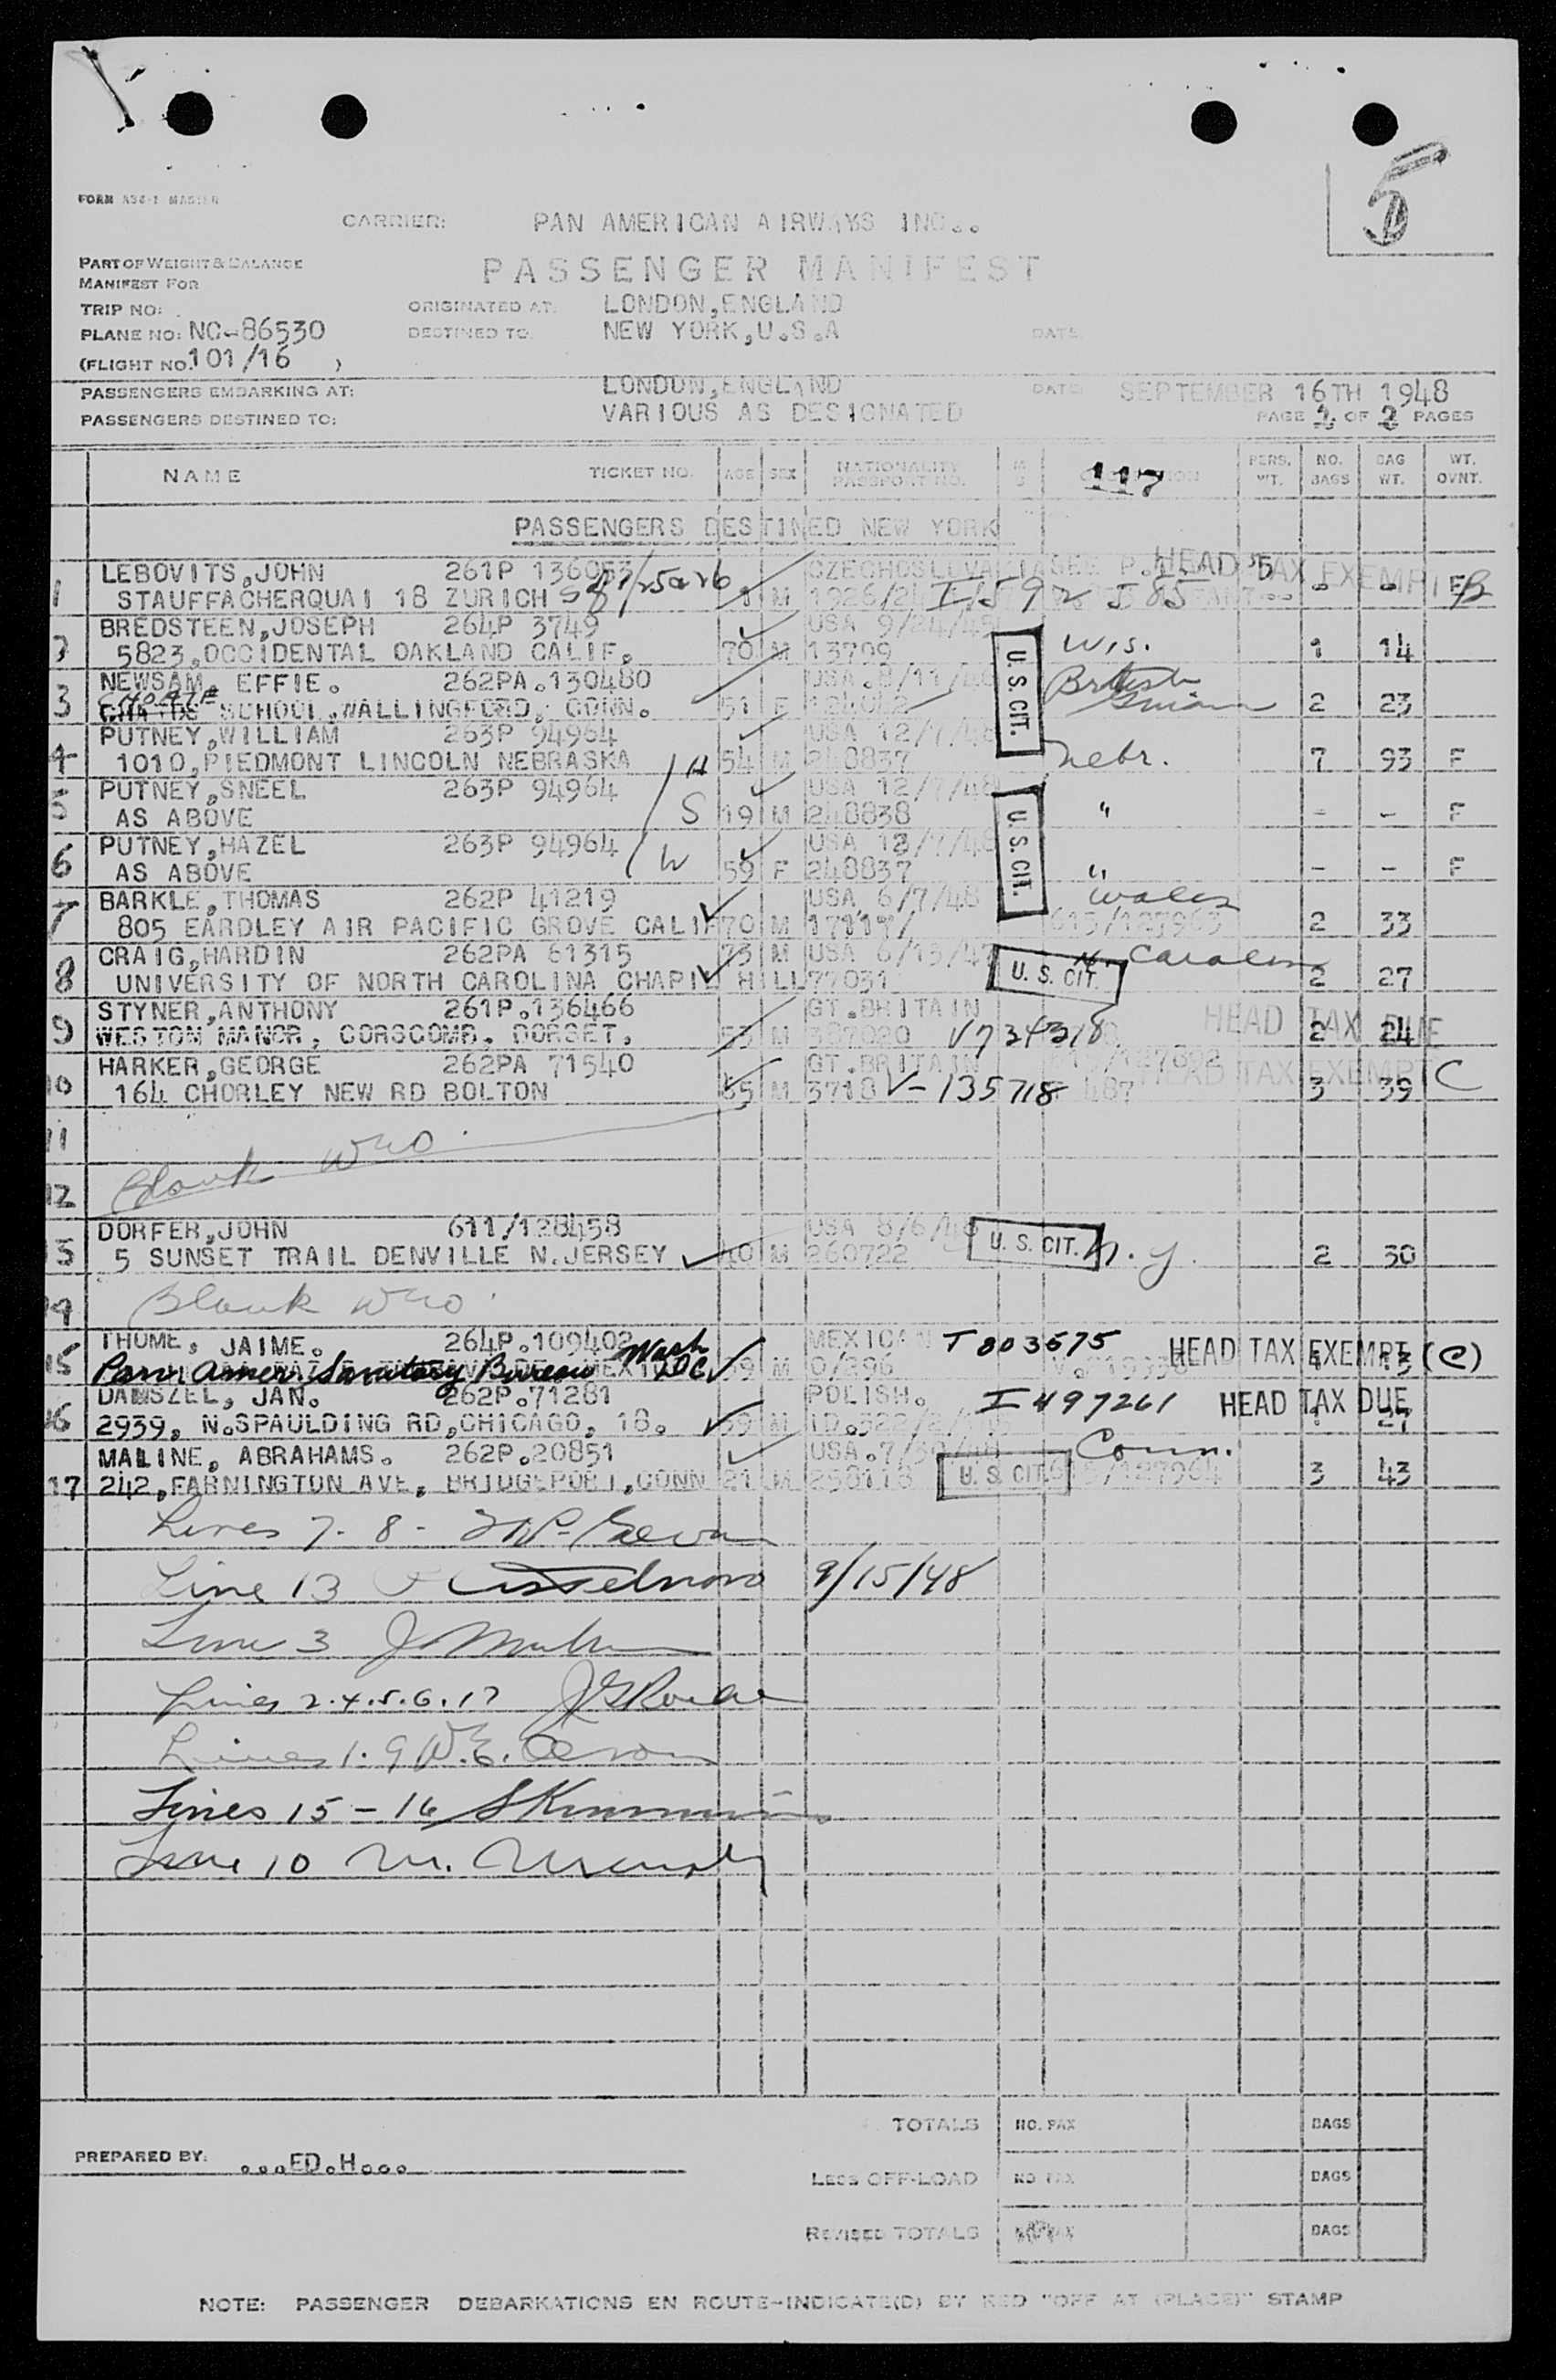 5
FORM A36-1 MASTER
CARRIER: PAN AMERICAN AIRWAYS INC..
PART OF WEIGHT & BALANCE
MANIFEST FOR
PASSENGER MANIFEST
TRIP NO: ORIGINATED AT: LONDON,ENGLAND
PLANE NO: NC-86530 DESTINED TO: NEW YORK,U.S.A DATE
(FLIGHT NO. 101/16 )
PASSENGERS EMBARKING AT: LONDON,ENGLAND DATE SEPTEMBER 16TH 1948
PASSENGERS DESTINED TO: VARIOUS AS DESIGNATED PAGE 1 OF 2 PAGES
NAME TICKET NO. AGE SEX NATIONALITY PASSPORT NO. M S 117 PERS. WT. NO. BAGS BAG WT. WT. OVNT.
PASSENGERS DESTINED NEW YORK
1 LEBOVITS,JOHN 261P 136053 HEAD TAX EXEMPT
STAUFFACHERQUAI 18 ZURICH M 1926/2 I 1592 585 B
2 BREDSTEEN,JOSEPH 264P 3749 USA 9/24/45
5823,OCCIDENTAL OAKLAND CALIF. 70 M 13799 U.S.CIT. Wis. 1 14
NEWSAM, EFFIE. 262PA.130480 USA.8/11/48 British
3 CHOATE SCHOOL,WALLINGFORD, CONN. 51 F Guiana 2 23
PUTNEY,WILLIAM 263P 94964 USA 12/7/48
4 1010,PIEDMONT LINCOLN NEBRASKA H 54 M 248837 Nebr. 7 93 F
PUTNEY,SNEEL 263P 94964 USA 12/7/48
5 AS ABOVE S 19 M 248838 U.S.CIT. " - - F
PUTNEY,HAZEL 263P 94964 USA 12/7/48
6 AS ABOVE W 59 F 248837 " - - F
BARKLE,THOMAS 262P 41219 USA 6/7/48 Wales
7 805 EARDLEY AIR PACIFIC GROVE CALIF 70 M 615/127963 2 33
CRAIG,HARDIN 262PA 61315 73 M USA 6/13/47 N. Carolina
8 UNIVERSITY OF NORTH CAROLINA CHAPIL HILL 77031 U.S. CIT. 2 27
STYNER,ANTHONY 261P.136466 GT.BRITAIN HEAD TAX DUE
9 WESTOM MANOR, CORSCOMB. DORSET. 53 M 387020 V734318 2 24
HARKER,GEORGE 262PA 71540 GT.BRITAIN HEAD TAX EXEMPT C
10 164 CHORLEY NEW RD BOLTON 55 M 3718 V-135718 487 3 39
11
12 Blank WEO
DORFER,JOHN 611/128458 USA 8/6/48
13 5 SUNSET TRAIL DENVILLE N.JERSEY 40 M 260722 U.S. CIT. N.Y. 2 30
14 Blank WEO
THOME, JAIME. 264P.109402 MEXICAN T 803675 HEAD TAX EXEMPT (C)
15 Pan Amer. Sanitary Bureau Wash DC 39 M 0/296 13
DAMSZEL, JAN. 262P.71281 POLISH. I 497261 HEAD TAX DUE
16 2939, N.SPAULDING RD,CHICAGO, 18. 39 M
MALINE, ABRAHAMS. 262P.20851 USA.7/30/48 Conn.
17 242,FARNINGTON AVE, BRIDGEPORT,CONN 21 M 250118 U.S. CIT. 615/127964 3 43
Lines 7-8-
Line 13 9/15/48
Line 3
Lines 2.4.5.6.17
Lines 1.9
Lines 15-16
Line 10 M.
TOTALS NO. PAX BAGS
PREPARED BY: ...ED.H...
LESS OFF-LOAD NO PAX BAGS
REVISED TOTALS BAGS
NOTE: PASSENGER DEBARKATIONS EN ROUTE-INDICATE(D) BY RED "OFF AT (PLACE)" STAMP